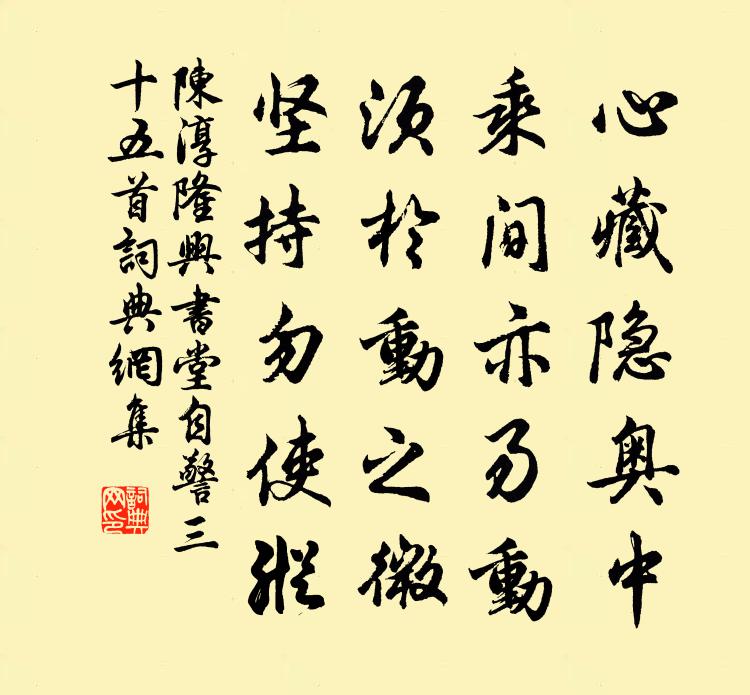 心藏隐奥中
乘间亦易動
须於動之微
坚持勿使縱
陳淳隆興書堂自警三
十五首詞典網集
詞典
网印